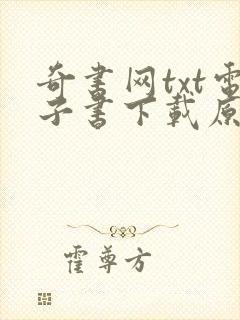 奇书网txt电
子书下载原
霍尊方